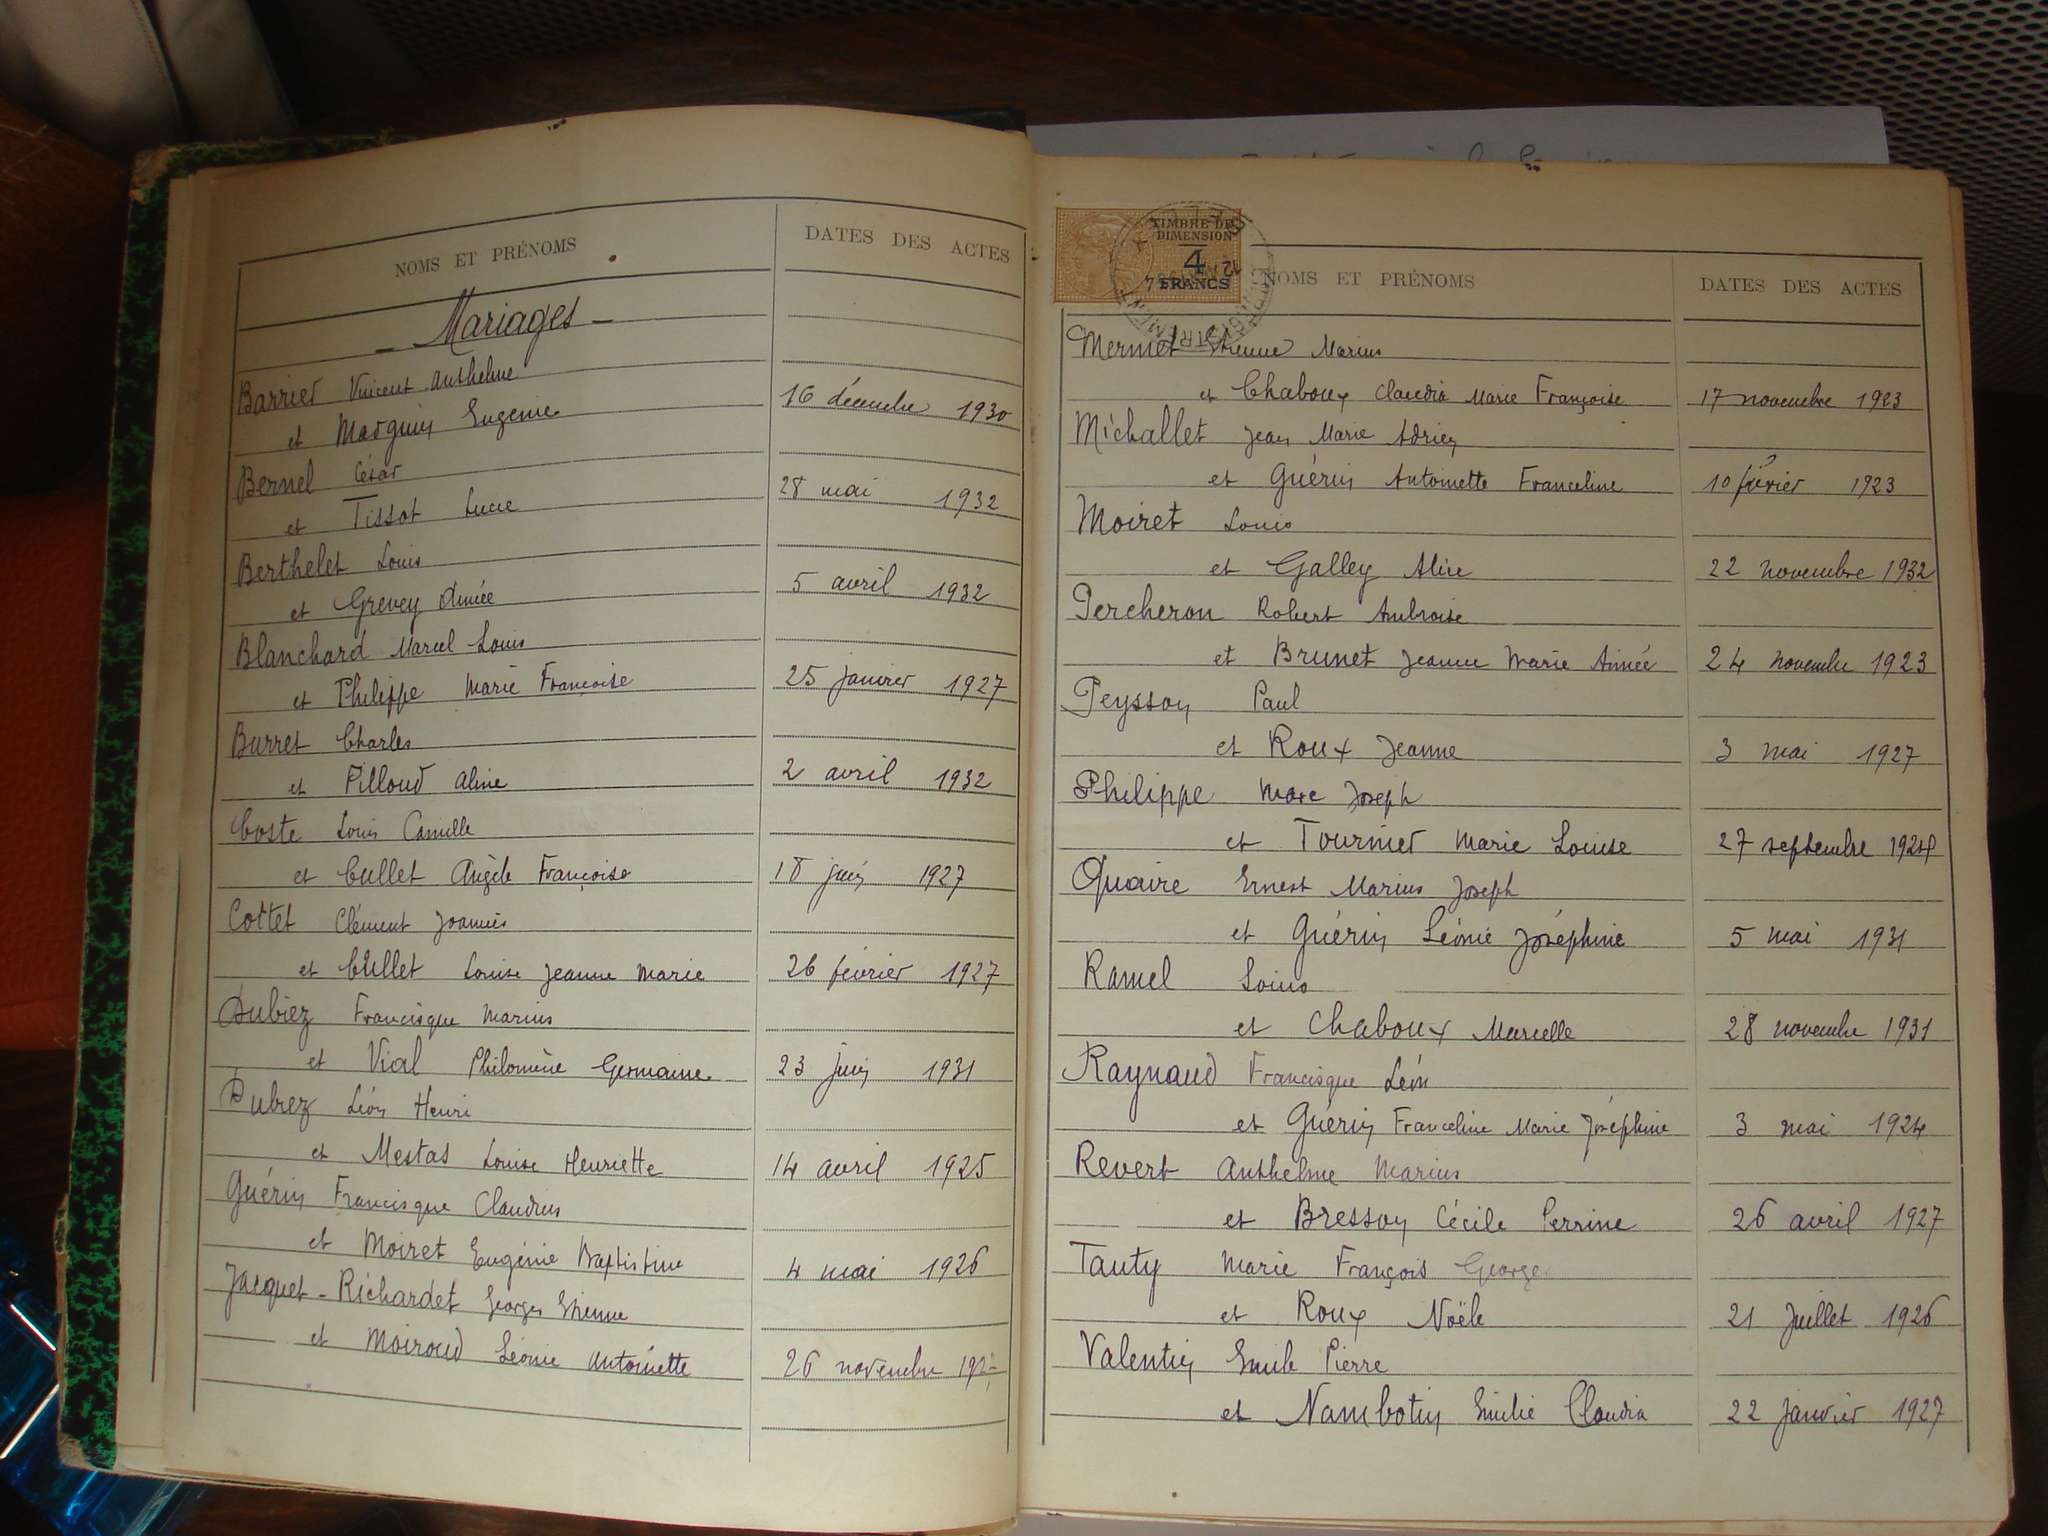 NOMS ET PRÉNOMS DATES DES ACTES
Mariages
Barrier Vincent Anthelme
et Marguin Eugénie 16 décembre 1930
Bernel César
et Tissot Lucie 28 mai 1932
Berthelet Louis
et Grevey Aimée 5 avril 1932
Blanchard Marcel Louis
et Philippe Marie Françoise 25 janvier 1927
Burret Charles
et Pilloud Aline 2 avril 1932
Coste Louis Camille
et Cullet Angèle Françoise 18 juin 1927
Cottet Clément Joannès
et Cullet Louise Jeanne Marie 26 février 1927
Dubiez Francisque Marius
et Vial Philomène Germaine 23 juin 1931
Dubiez Léon Henri
et Mestas Louise Henriette 14 avril 1925
Guérin Francisque Claudius
et Moiret Eugénie Baptistine 4 mai 1926
Jacquet-Richardet Georges Etienne
et Moiroud Léonie Antoinette 26 novembre
TIMBRE DE
DIMENSION
4
FRANCS
NOMS ET PRÉNOMS DATES DES ACTES
Mermet Etienne Marius
et Chaboux Claudia Marie Françoise 17 novembre 1923
Michallet Jean Marie Adrien
et Guérin Antoinette Franceline 10 février 1923
Moiret Louis
et Galley Alice 22 novembre 1932
Percheron Robert Ambroise
et Brunet Jeanne Marie Aimée 24 novembre 1923
Peysson Paul
et Roux Jeanne 3 mai 1927
Philippe Marc Joseph
et Tournier Marie Louise 27 septembre 1924
Quaire Ernest Marius Joseph
et Guérin Léonie Joséphine 5 mai 1931
Ramel Louis
et Chaboux Marcelle 28 novembre 1931
Raynaud Francisque Léon
et Guérin Franceline Marie Joséphine 3 mai 1924
Revert Anthelme Marius
et Bresson Cécile Perrine 26 avril 1927
Tauty Marie François George
et Roux Noële 21 Juillet 1926
Valentin Emile Pierre
et Nambotin Emilie Claudia 22 janvier 1927